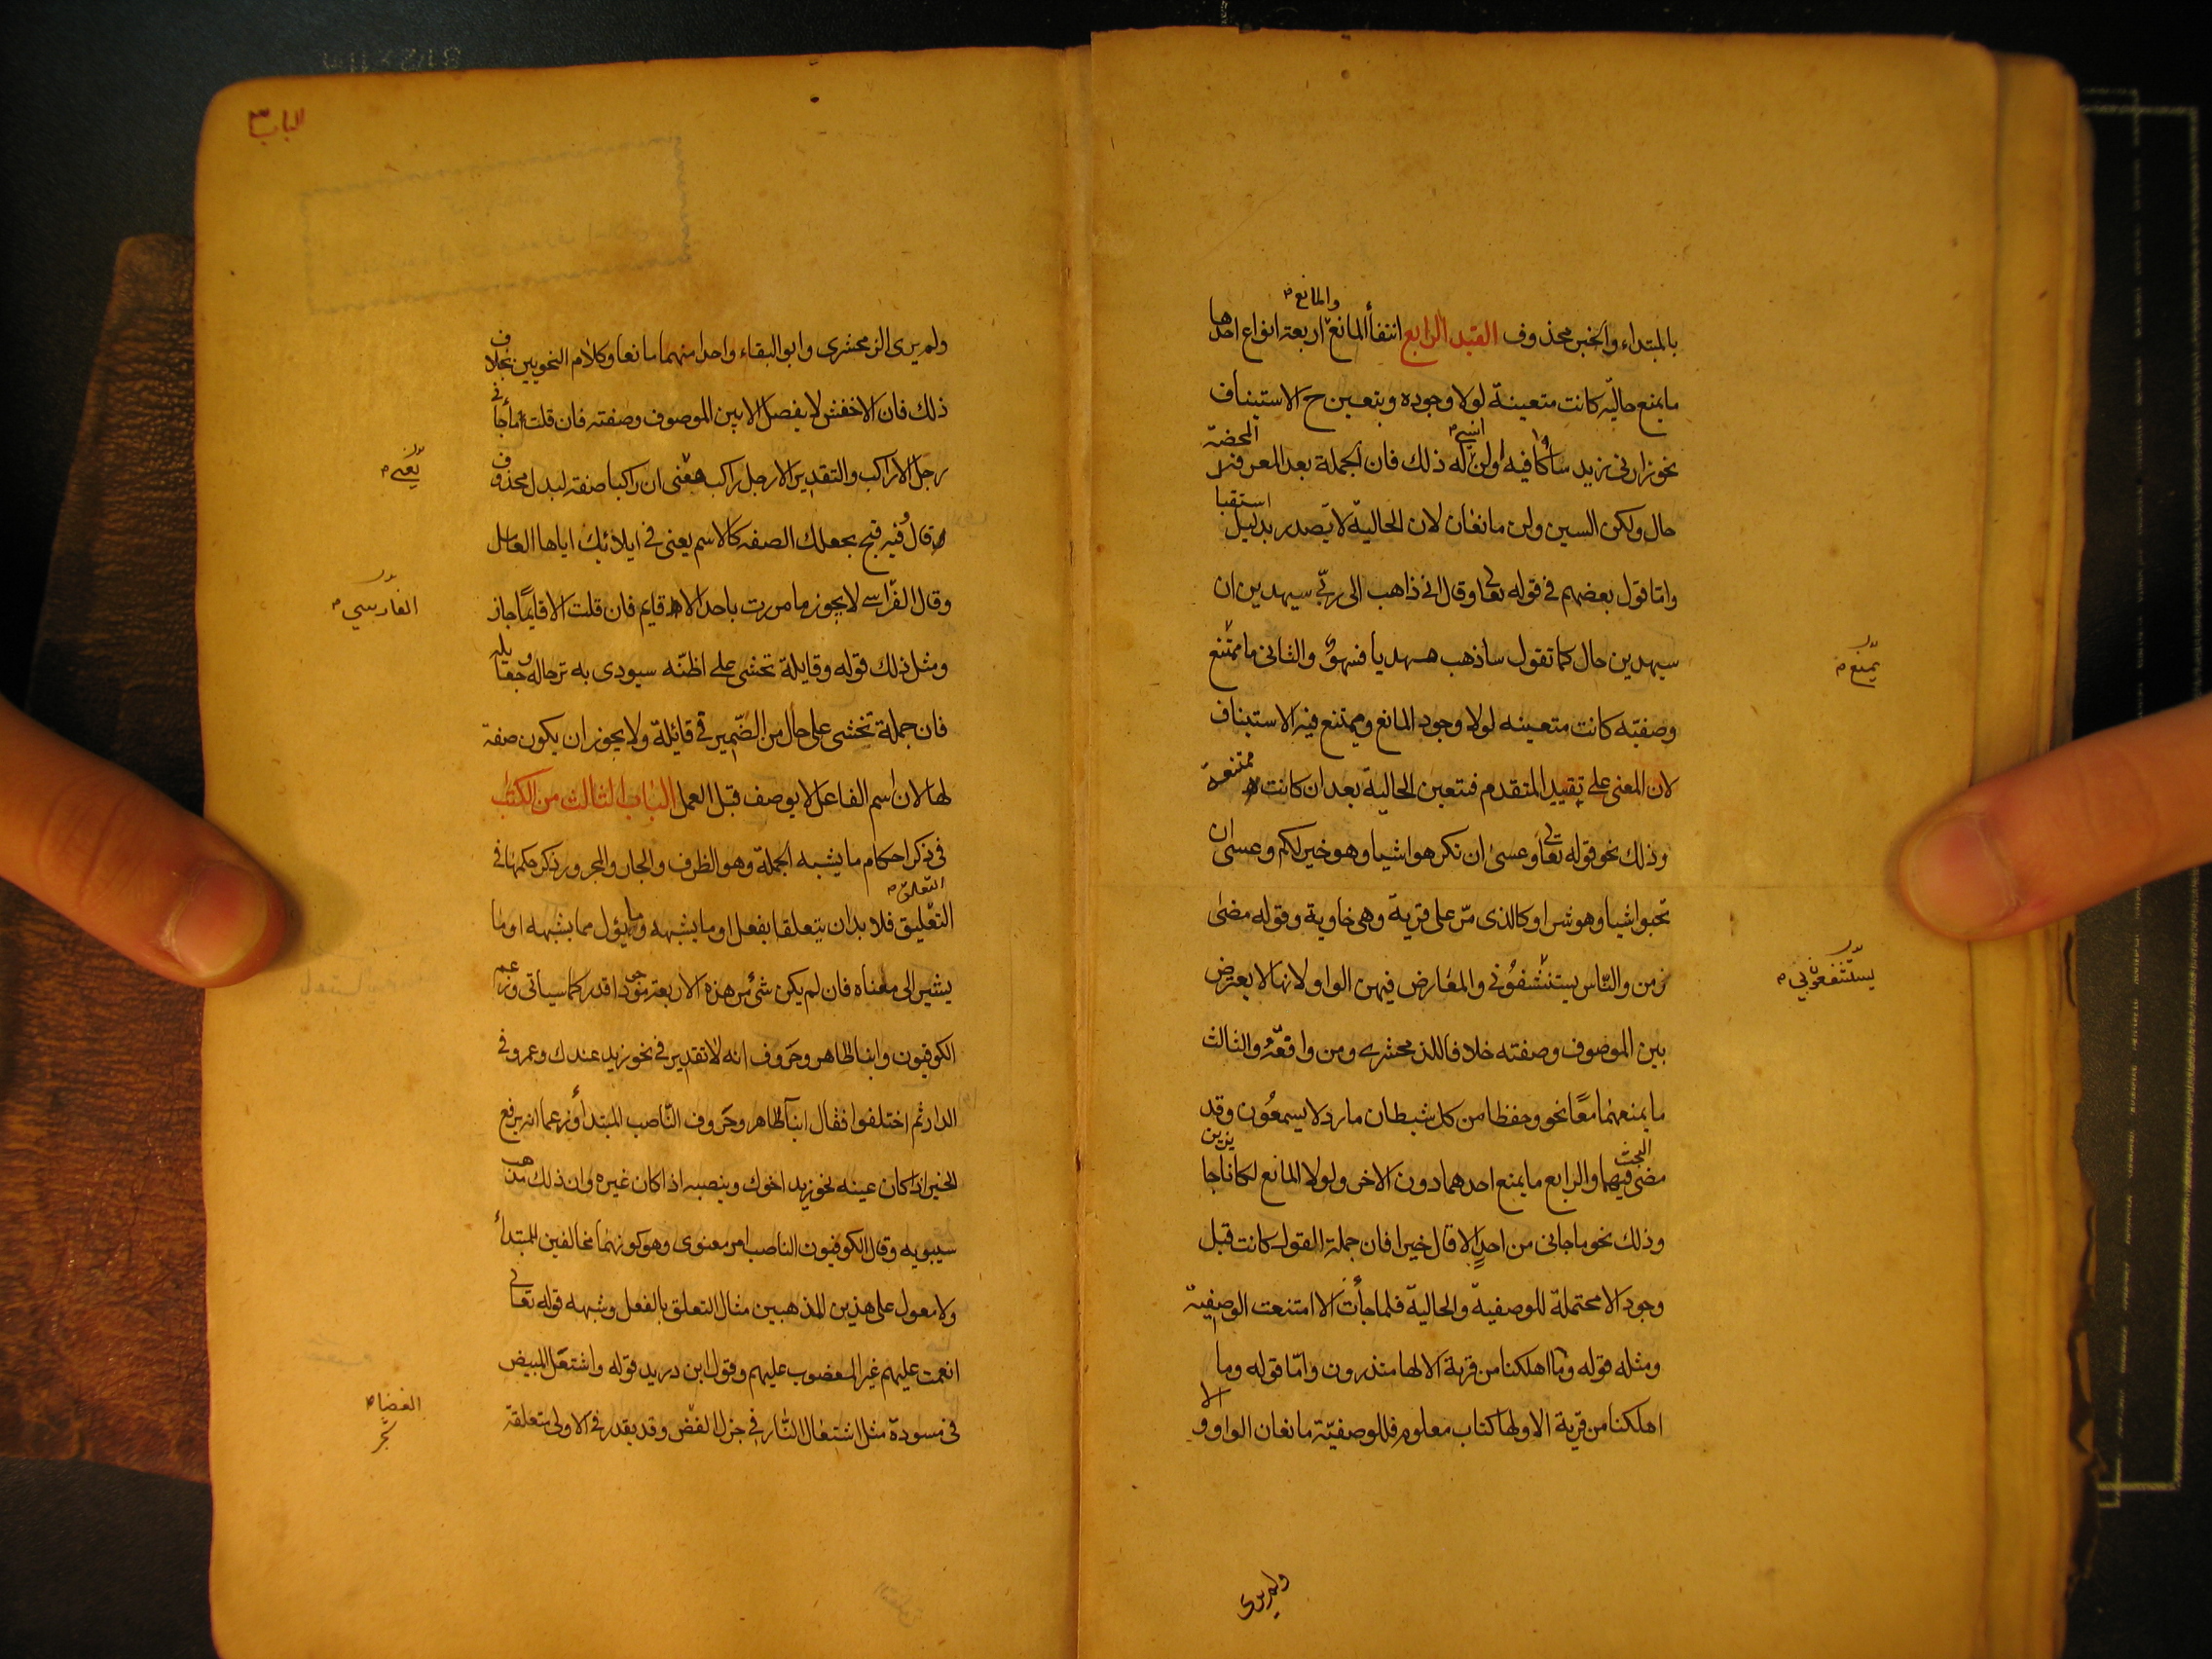 بالمبتداء والخبر محذوف القيد الرابع انتفأ المانع اربعة انواع احدها
والمانع
ما يمنع حاليّه كانت متعينة لولا وجوده ويتعين ح الاستيناف
نحو زارنى زيد سأكافيه اولن له ذلك فان الجملة بعد المعرفة المحضة
انسى
حال ولكن السين ولن مانعان لان الحالية لا يصدر بدليل استقبا
وامّا قول بعضهم فى قوله تعا وقال انى ذاهب الى ربّى سيهدين ان
سيهدين حال كما تقول ساذهب مهديا فسهوٌ والثانى ما ممتنع
يمنع
وصفيّه كانت متعينه لولا وجود المانع ويمتنع فيه الاستيناف
لان المعنى على تقييد المتقدم فتعين الحالية بعد ان كانت ممتنعة
وذلك نحو قوله تعا وعسى ان تكرهوا شيا وهو خير لكم وعسى ان
تحبوا شيا وهو شر او كالذى مرّ على قرية وهى خاوية وقوله مضى
زمن والنّاس يستشفعونى والمعارض فيهن الواو لانها لا يعترض
يستشفعون بى
بين الموصوف وصفته خلافا للزمخشرى ومن وافقهُ والثالث
ما يمنعهما معًا نحو وحفظا من كل شيطان مارد لا يسمعون وقد
مضى البحث فيهما والرابع ما يمنع احدهما دون الاخر ولولا المانع لكانا جايزين
وذلك نحو ما جانى من احدٍ الا قال خيرا فان جملة القول كانت قبل
وجود الا محتملة للوصفية والحالية فلما جأت الا امتنعت الوصفيّة
ومثله قوله وما اهلكنا من قرية الا لها منذرون وامّا قوله وما
اهلكنا من قرية الا ولها كتاب معلوم فللوصفيّة مانعان الواو و الا
ولم يرى
الباب ٣
ولم يرى الزمحشرى وابو البقاء واحدا منهما مانعا وكلام النحويين بخلاف
ذلك فان الاخفش لا يفصل الا بين الموصوف وصفته فان قلت ما جأنى
رجل الا راكب والتقدير الا رجل راكب يعنى ان راكبا صفة لبدل محذوف
يَعْنى
قال وفيه قبح بجعلك الصفه كالاسم يعنى فى ايلائك اياها العامل
وقال الفراسى لا يجوز ما مررت باحد الا قايم فان قلت الا قايمًا جاز
الفارسى
ومثل ذلك قوله وقايلة تخشى على اظنّه سيودى به ترحاله وجعايله
فان جملة تخشى على حال من الضّمير فى قائلة ولا يجوز ان يكون صفة
لها لان اسم الفاعل لا يوصف قبل العمل الباب الثالث من الكتاب
فى ذكر احكام ما يشبه الجملة وهو الظرف والجار والمجرور ذكر حكمها فى
التعليق فلا بد ان يتعلقا بفعل او ما يشبهه وما يؤل مما يشبهه او ما
التعلق
يشير الى معناه فان لم يكن شئ من هذه الاربعة موجودا قدر كما سياتى وزعم
الكوفيون وابنا طاهر وخروف انه لا تقدير فى نحو زيد عندك وعمرو فى
الدار ثم اختلفوا فقال ابنا طاهر وخروف النّاصب المبتدأ وزعما انه يرفع
الخبر اذا كان عينه نحو زيد اخوك وينصبه اذا كان غيره وان ذلك مذهب
سيبويه وقال الكوفيون الناصب امر معنوى وهو كونهما مخالفين للمبتدأ
ولا معول على هذين المذهبين مثال التعلق بالفعل وشبهه قوله تعالى
انعمت عليهم غير المغضوب عليهم وقول ابن دريد قوله واشتعل المبيض
فى مسودّة مثل اشتعال النّار فى جزل الغض وقد يقدر فى الاولى متعلقة
الغضا